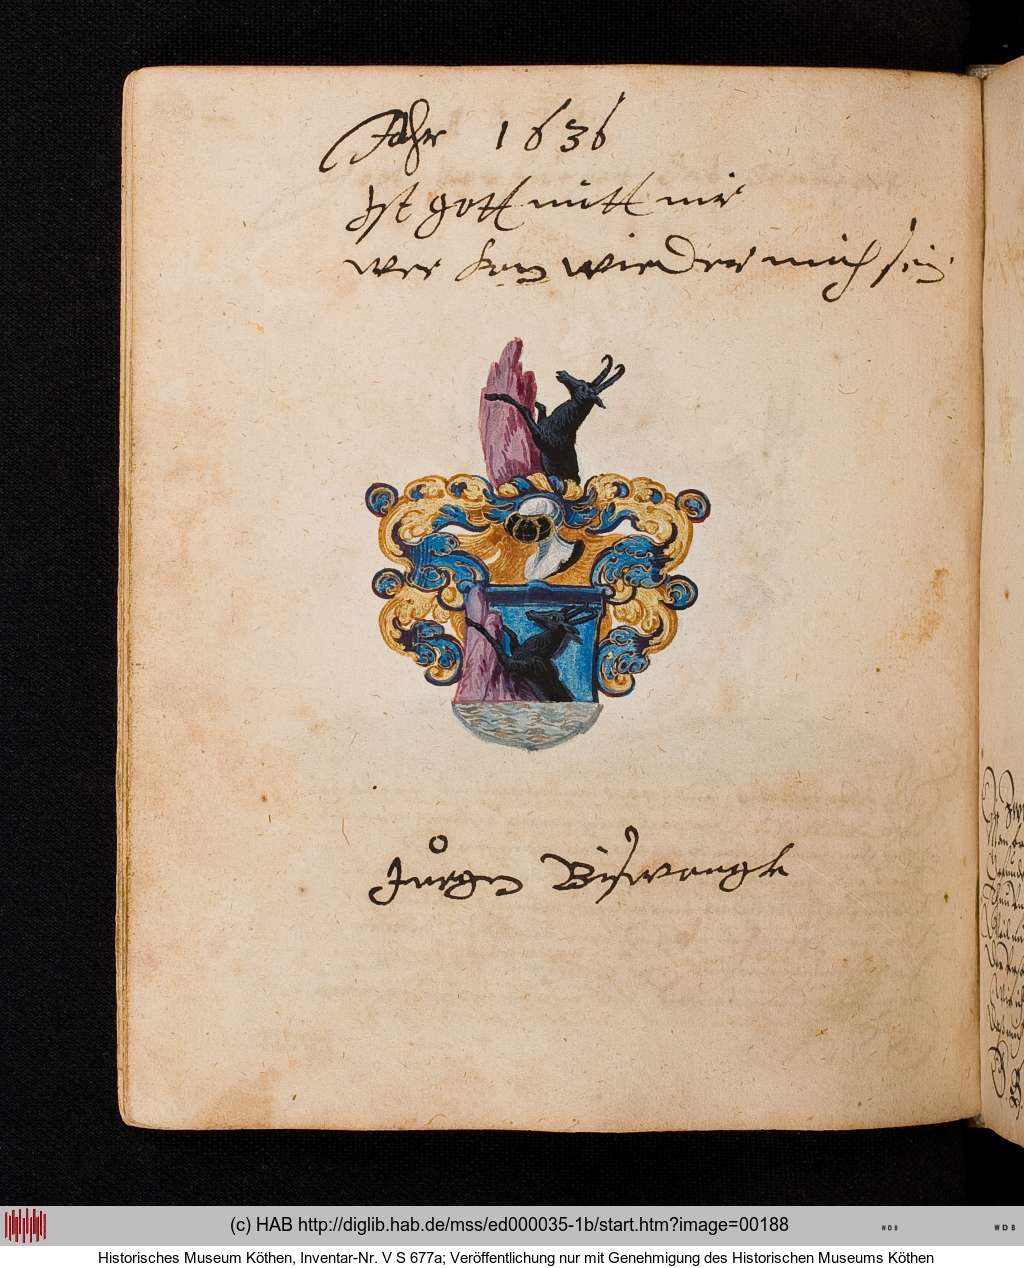 Jahr 1636
Ist gott mitt mir
wer kan wieder mich sein
Jürgen
(c) HAB http://diglib.hab.de/mss/ed000035-1b/start.htm?image=00188
WDB
WDB
Historisches Museum Köthen, Inventar-Nr. V S 677a; Veröffentlichung nur mit Genehmigung des Historischen Museums Köthen